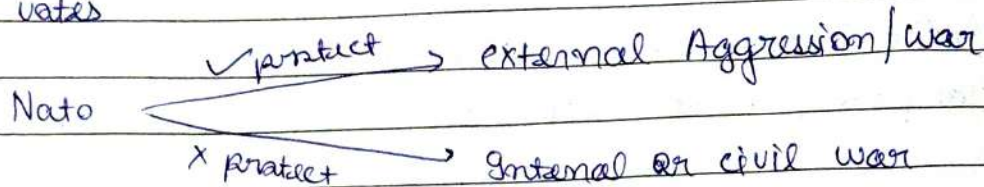 vates
✓ protect → external Aggression/war
Nato
× protect → Internal or civil war